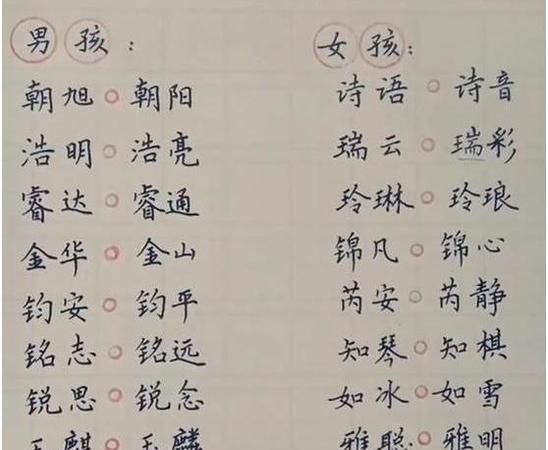 男孩： 女孩：
朝旭○朝阳 诗语○诗音
浩明○浩亮 瑞云○瑞彩
睿达○睿通 玲琳○玲琅
金华○金山 锦凡○锦心
钧安○钧平 芮安○芮静
铭志○铭远 知琴○知棋
锐思○锐念 如冰○如雪
玉麒○玉麟 雅聪○雅明